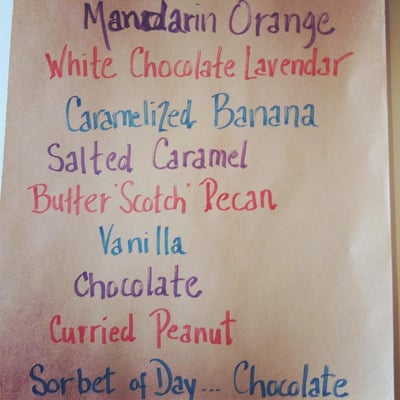 Mandarin Orange
White Chocolate Lavendar
Caramelized Banana
Salted Caramel
Butter 'Scotch' Pecan
Vanilla
Chocolate
Curried Peanut
Sorbet of Day... Chocolate